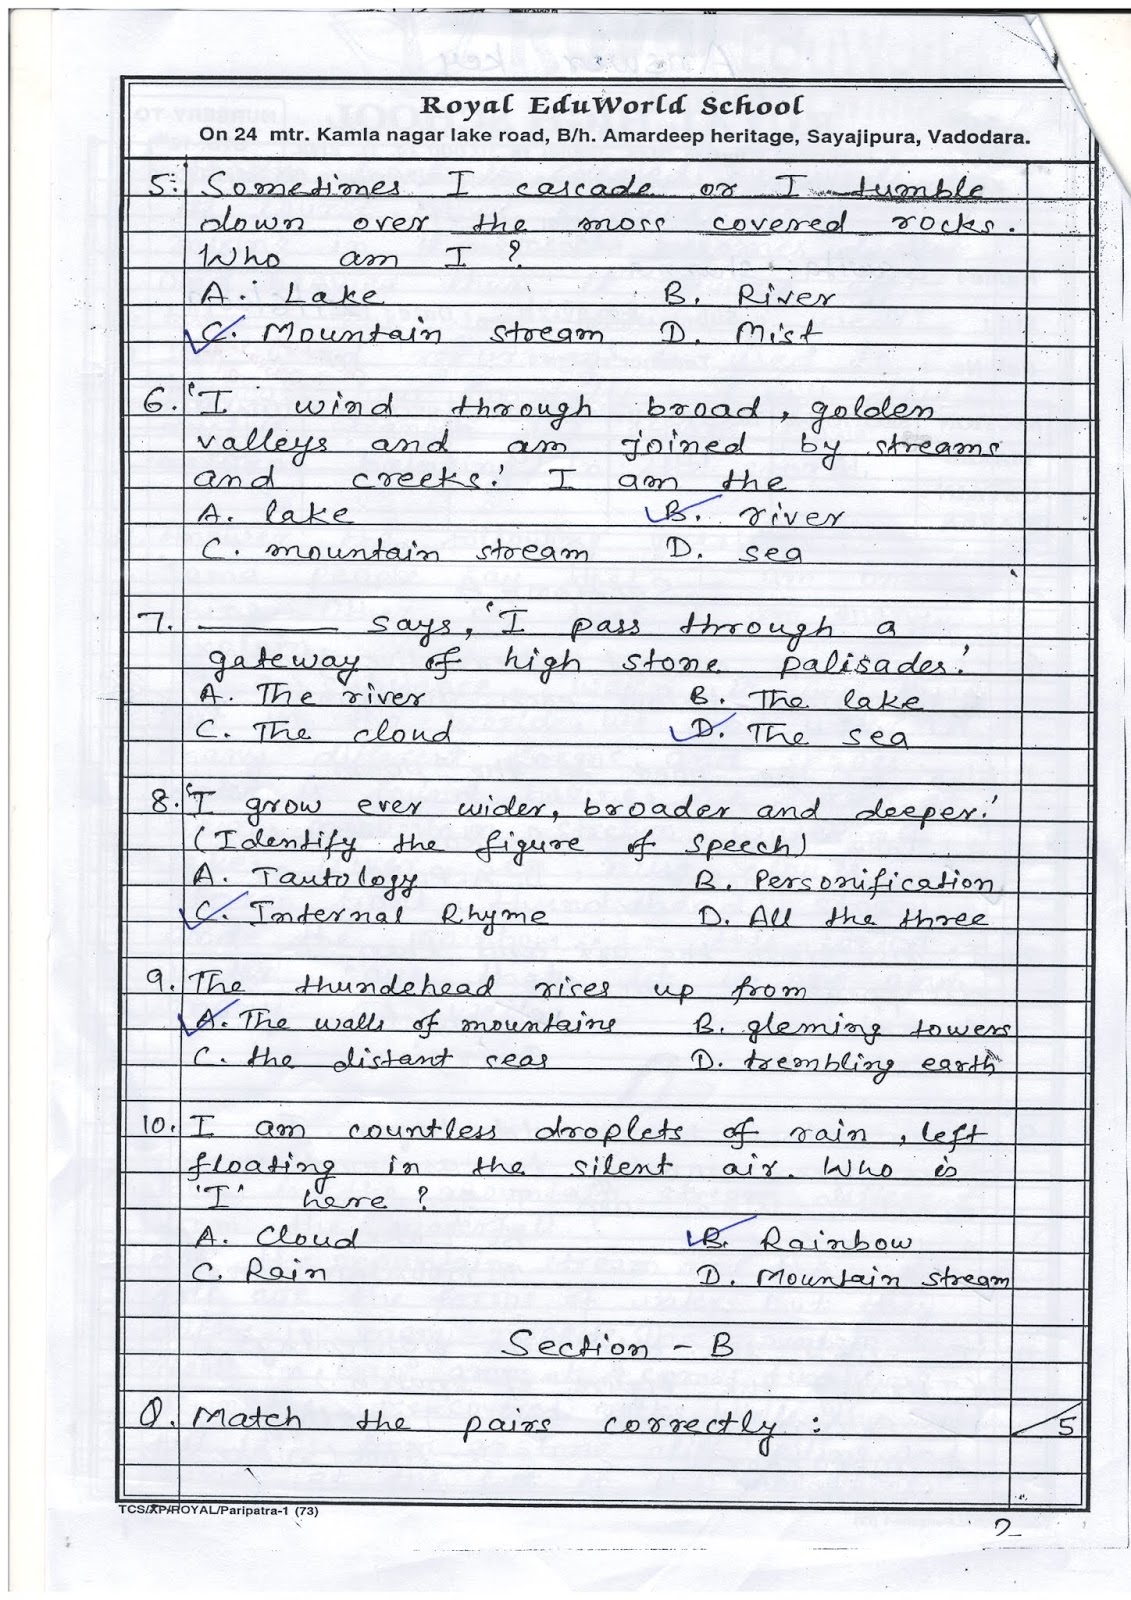 Royal EduWorld School
On 24 mtr. Kamla nagar lake road, B/h. Amardeep heritage, Sayajipura, Vadodara.
5. Sometimes I cascade or I tumble
down over the moss covered rocks.
Who am I ?
A. Lake B. River
C. Mountain stream D. Mist
6. 'I wind through broad, golden
valleys and am joined by streams
and creeks.' I am the
A. lake B. river
C. mountain stream D. sea
7. ______ says, 'I pass through a
gateway of high stone palisades.'
A. The river B. The lake
C. The cloud D. The sea
8. 'I grow ever wider, broader and deeper.'
(Identify the figure of speech)
A. Tautology B. Personification
C. Internal Rhyme D. All the three
9. The thundehead rises up from
A. The walls of mountains B. gleming towers
C. the distant seas D. trembling earth
10. I am countless droplets of rain, left
floating in the silent air. Who is
'I' here ?
A. Cloud B. Rainbow
C. Rain D. Mountain stream
Section - B
Q. Match the pairs correctly : 5
TCS/XP/ROYAL/Paripatra-1 (73)
2